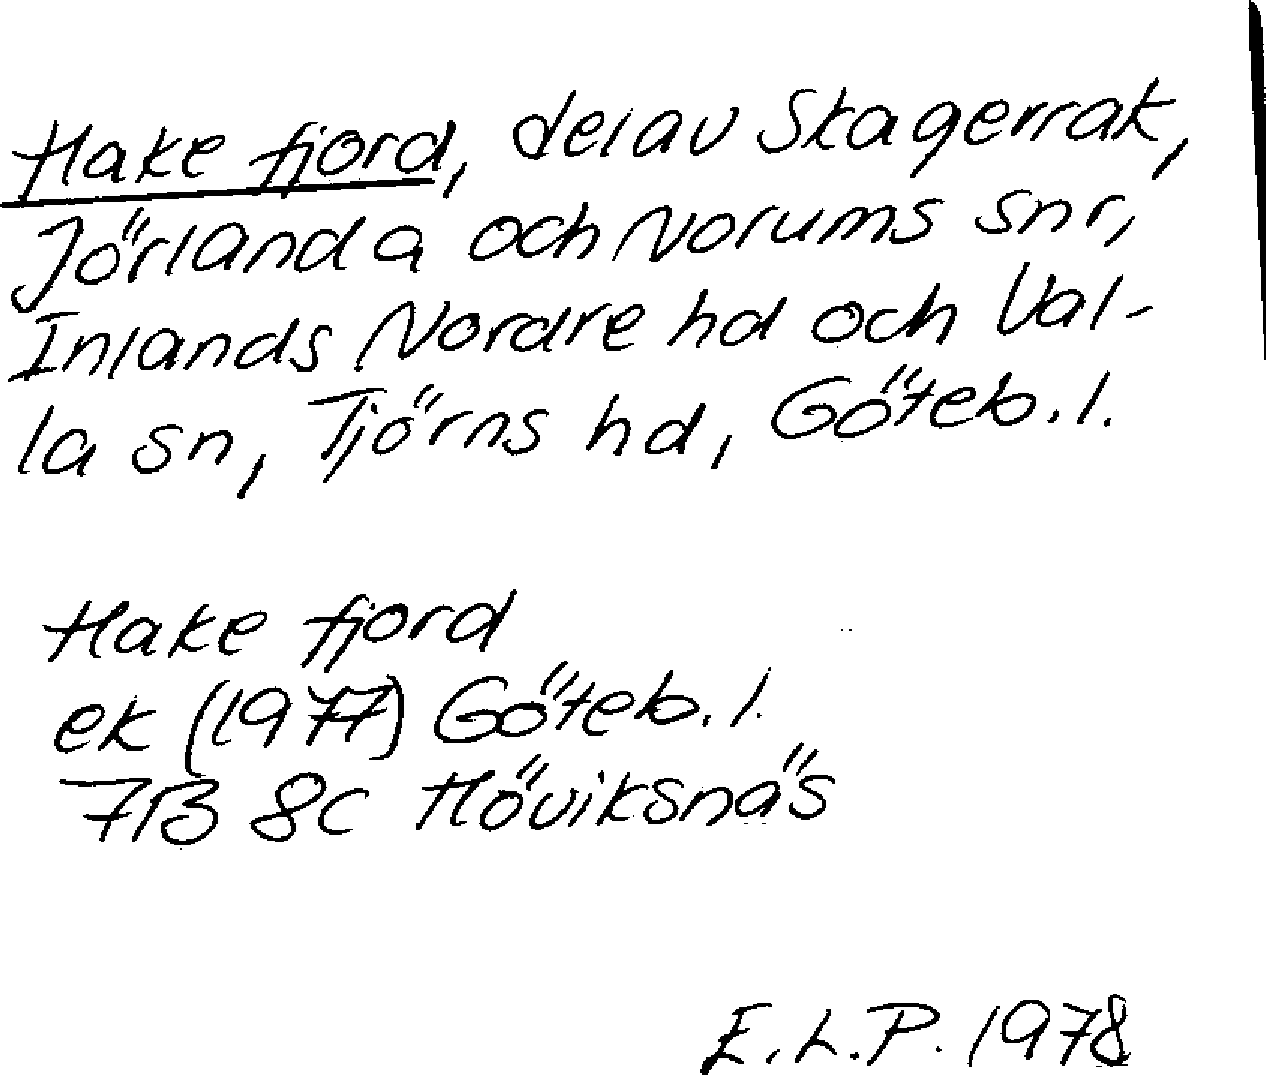 Hake fjord, del av Skagerrak,
Jörlanda och Norums snr,
Inlands Nordre hd och Val-
la sn, Tjörns hd, Göteb. l.
Hake fjord
ek (1977) Göteb. l.
7B 8c Höviksnäs
E.L.P. 1978